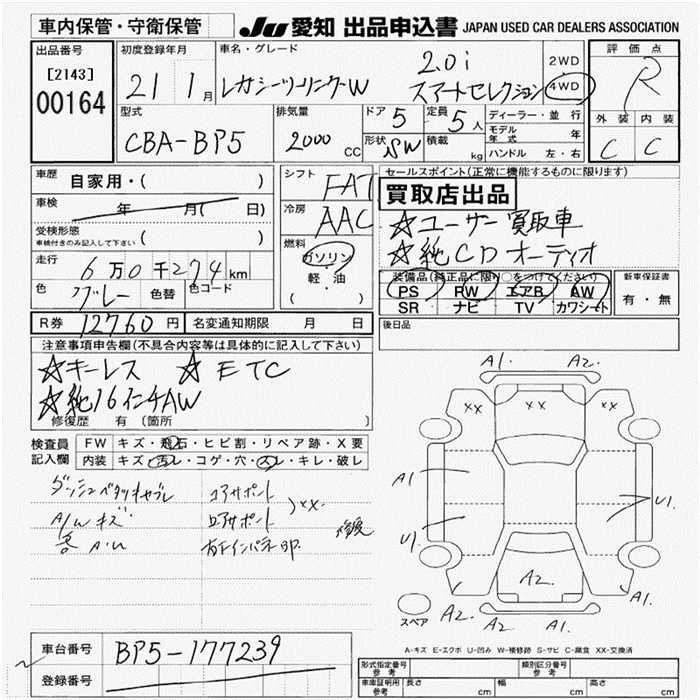 車内保管・守衛保管
JU 愛知 出品申込書 JAPAN USED CAR DEALERS ASSOCIATION
出品番号
[2143]
00164
初度登録年月
21 1月
車名・グレード
レガシーツーリングW
2.0i
スマートセレクション
2WD
4WD
評価点
R
外装 内装
C C
型式
CBA-BP5
排気量
2000 CC
ドア 5
定員 5人
形状 SW
積載 kg
ディーラー・並行
モデル年式 年
ハンドル 左・右
車歴 自家用・( )
車検 年 月( 日)
受検形態
車検付きのみ記入して下さい ( )
走行 6万0千274km
色 グレー 色替 色コード
シフト FAT
冷房 AAC
燃料
ガソリン
軽・油
( )
セールスポイント(正常に機能するものに限ります)
買取店出品
☆ユーザー買取車
☆純CDオーディオ
装備品(純正品に限り○をつけてください)
PS PW エアB AW
SR ナビ TV カワシート
新車保証書
有・無
R券 12760円 名変通知期限 月 日
後日品
注意事項申告欄(不具合内容等は具体的に記入して下さい)
☆キーレス ☆ETC
☆純16インチAW
修復歴 有 〔箇所 〕
検査員記入欄
FW キズ・飛石・ヒビ割・リペア跡・X要
内装 キズ・汚レ・コゲ・穴・スレ・キレ・破レ
A/Wキズ
コアサポート
ロアサポート
XX
A1. A2.
XX XX XX
A1
U1
U1.
A2.
A2
A2. A1. A1.
スペア
A-キズ E-エクボ U-凹み W-補修跡 S-サビ C-腐食 XX-交換済
車台番号 BP5-177239
登録番号
型式指定番号 参考
類別区分番号 参考
車庫証明用 参考 長さ cm 幅 cm 高さ cm